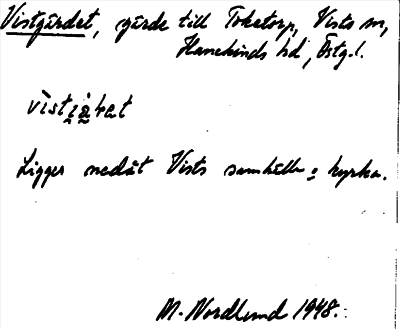 Vistgärdet, gärde till Toketorp, Vists sn,
Hanekinds hd, Östg. l.
Ligger nedåt Vists samhälle o kyrka.
M. Nordlund 1948.